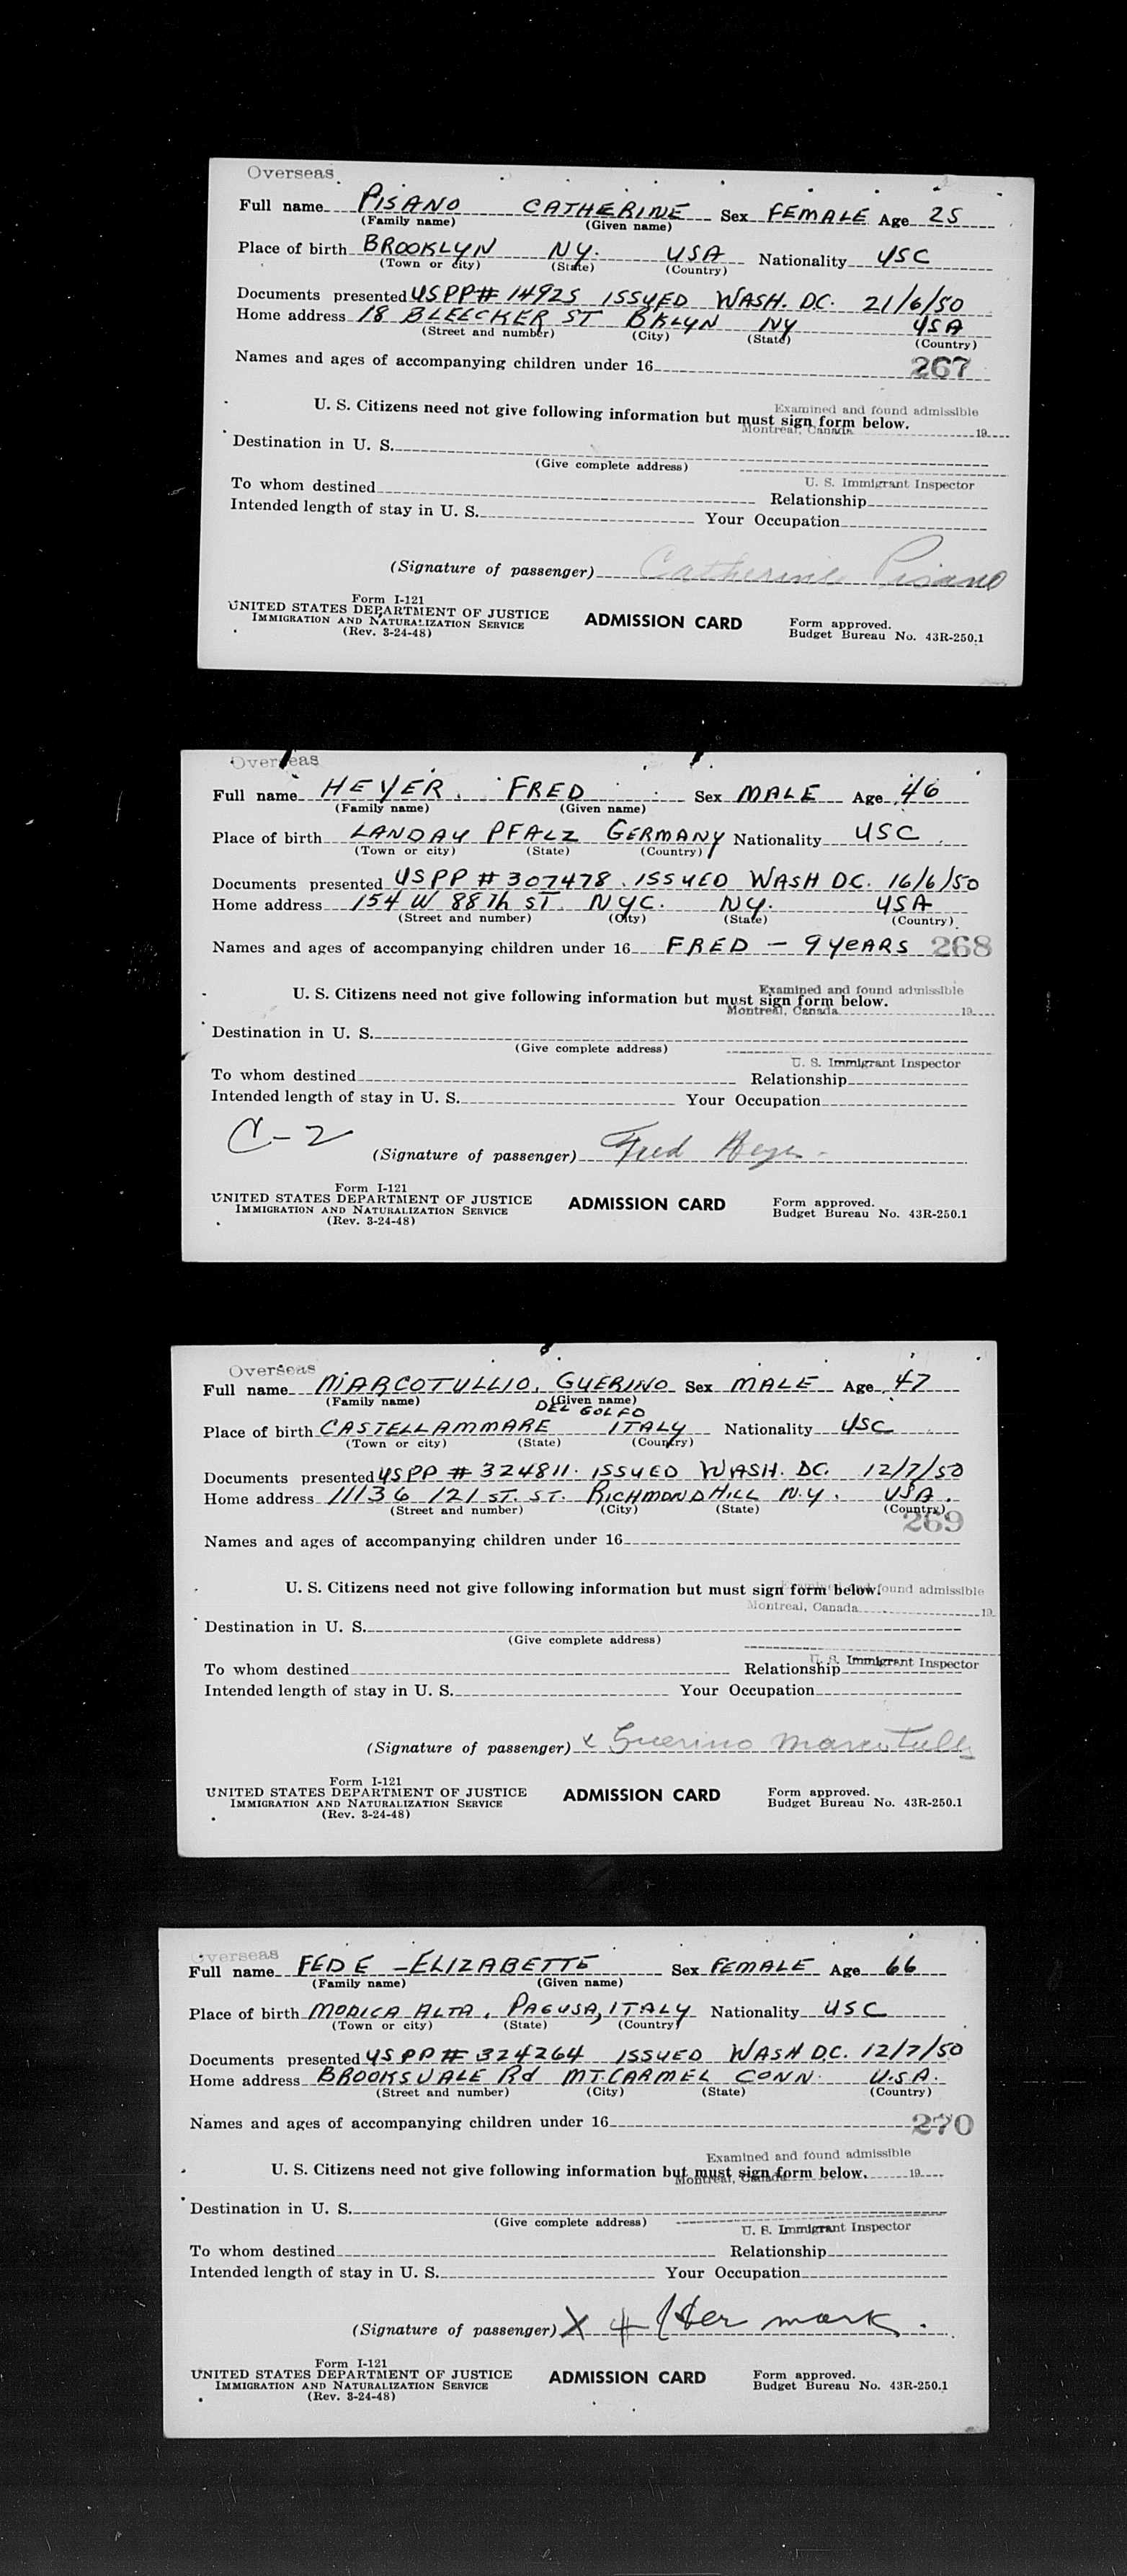 Overseas
Full name PISANO CATHERINE Sex FEMALE Age 25
(Family name) (Given name)
Place of birth BROOKLYN NY. USA Nationality USC
(Town or city) (State) (Country)
Documents presented USPP# 14925 ISSUED WASH. DC. 21/6/50
Home address 18 BLEECKER ST BKLYN NY USA
(Street and number) (City) (State) (Country)
Names and ages of accompanying children under 16 267
Examined and found admissible
U. S. Citizens need not give following information but must sign form below.
Montreal, Canada 19
Destination in U. S.
(Give complete address)
U. S. Immigrant Inspector
To whom destined Relationship
Intended length of stay in U. S. Your Occupation
(Signature of passenger) Catherine Pisano
Form I-121
UNITED STATES DEPARTMENT OF JUSTICE
IMMIGRATION AND NATURALIZATION SERVICE
(Rev. 3-24-48)
ADMISSION CARD
Form approved.
Budget Bureau No. 43R-250.1
Overseas
Full name HEYER. FRED Sex MALE Age 46
(Family name) (Given name)
Place of birth LANDAU PFALZ GERMANY Nationality USC
(Town or city) (State) (Country)
Documents presented USPP # 307478. ISSUED WASH DC. 16/6/50
Home address 154 W 88Th ST. NYC. NY. USA
(Street and number) (City) (State) (Country)
Names and ages of accompanying children under 16 FRED - 9 YEARS 268
Examined and found admissible
U. S. Citizens need not give following information but must sign form below.
Montreal, Canada 19
Destination in U. S.
(Give complete address)
U. S. Immigrant Inspector
To whom destined Relationship
Intended length of stay in U. S. Your Occupation
C-2
(Signature of passenger) Fred Heyer
Form I-121
UNITED STATES DEPARTMENT OF JUSTICE
IMMIGRATION AND NATURALIZATION SERVICE
(Rev. 3-24-48)
ADMISSION CARD
Form approved.
Budget Bureau No. 43R-250.1
Overseas
Full name MARCOTULLIO, GUERINO Sex MALE Age 47
(Family name) (Given name)
DEL GOLFO
Place of birth CASTELLAMMARE ITALY Nationality USC
(Town or city) (State) (Country)
Documents presented USPP # 324811. ISSUED WASH. DC. 12/7/50
Home address 11136 121 ST. ST. RICHMOND HILL N.Y. USA.
(Street and number) (City) (State) (Country)
269
Names and ages of accompanying children under 16
U. S. Citizens need not give following information but must sign form below.
Examined and found admissible
Montreal, Canada 19
Destination in U. S.
(Give complete address)
U. S. Immigrant Inspector
To whom destined Relationship
Intended length of stay in U. S. Your Occupation
(Signature of passenger) x Guerino Marcotullio
Form I-121
UNITED STATES DEPARTMENT OF JUSTICE
IMMIGRATION AND NATURALIZATION SERVICE
(Rev. 3-24-48)
ADMISSION CARD
Form approved.
Budget Bureau No. 43R-250.1
Overseas
Full name FEDE - ELIZABETTE Sex FEMALE Age 66
(Family name) (Given name)
Place of birth MODICA ALTA, RAGUSA, ITALY Nationality USC
(Town or city) (State) (Country)
Documents presented USPP# 324264 ISSUED WASH DC. 12/7/50
Home address BROOKSVALE Rd MT. CARMEL CONN. U.S.A.
(Street and number) (City) (State) (Country)
Names and ages of accompanying children under 16 270
Examined and found admissible
U. S. Citizens need not give following information but must sign form below.
Montreal, Canada 19
Destination in U. S.
(Give complete address)
U. S. Immigrant Inspector
To whom destined Relationship
Intended length of stay in U. S. Your Occupation
(Signature of passenger) X + (Her mark.
Form I-121
UNITED STATES DEPARTMENT OF JUSTICE
IMMIGRATION AND NATURALIZATION SERVICE
(Rev. 3-24-48)
ADMISSION CARD
Form approved.
Budget Bureau No. 43R-250.1